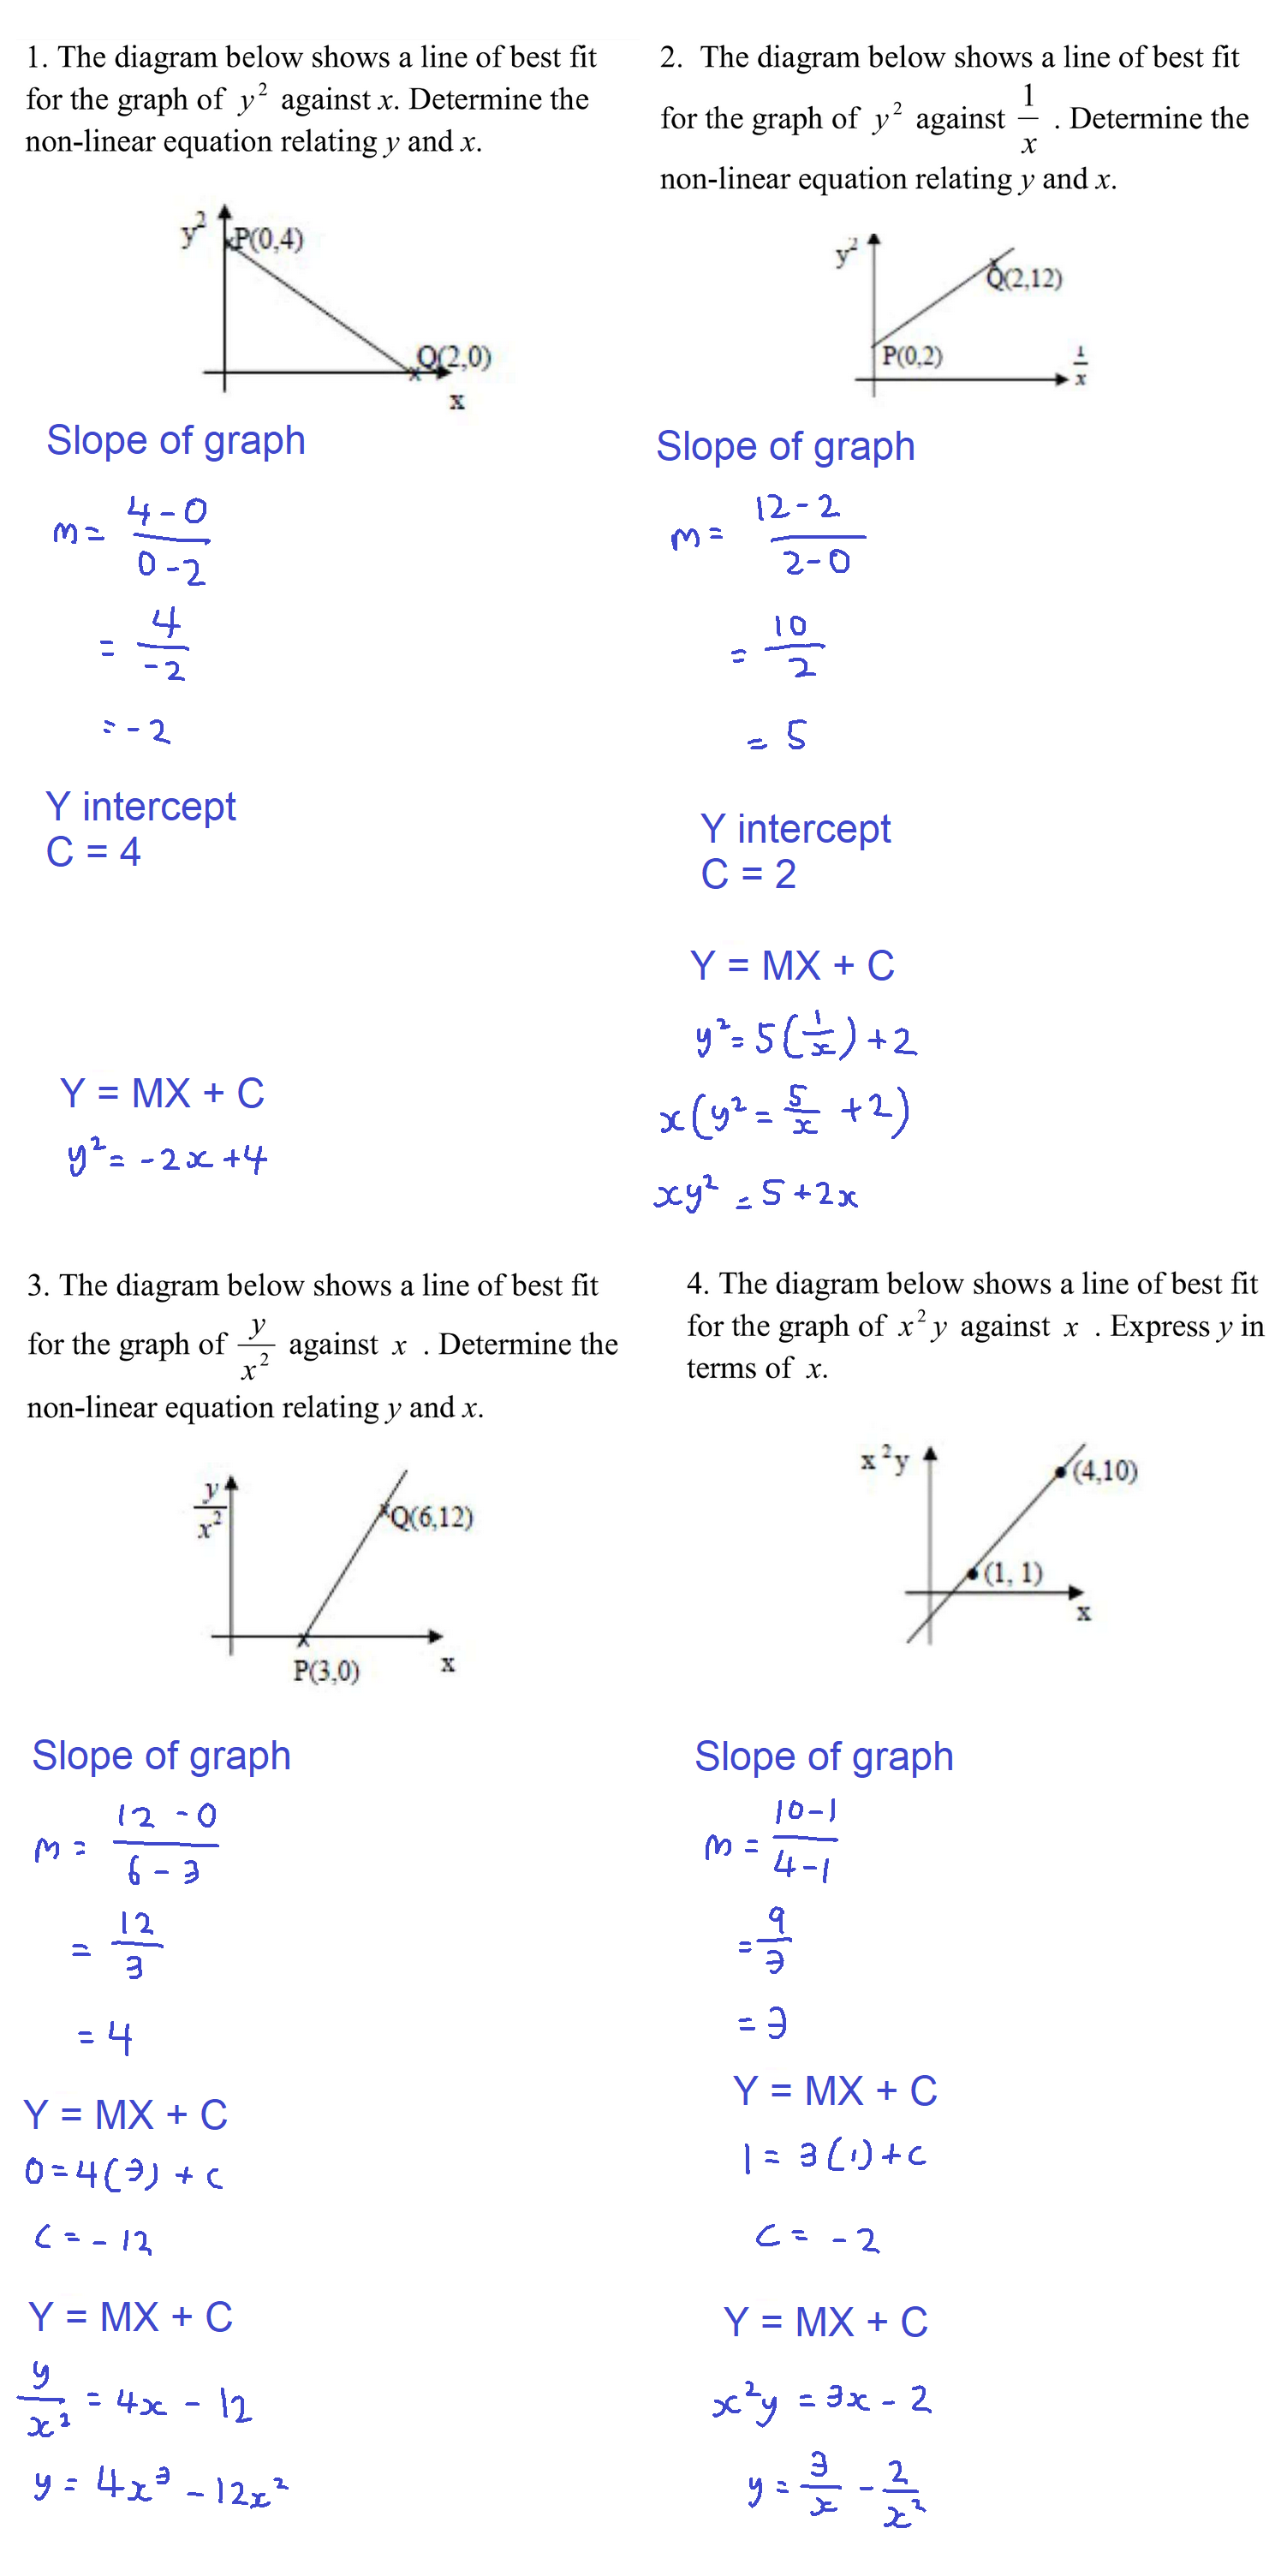 1. The diagram below shows a line of best fit
for the graph of y² against x. Determine the
non-linear equation relating y and x.
y²
P(0,4)
Q(2,0)
x
Slope of graph
m = (4 - 0)/(0 - 2)
= 4/-2
= -2
Y intercept
C = 4
Y = MX + C
y² = -2x + 4
2. The diagram below shows a line of best fit
for the graph of y² against 1/x . Determine the
non-linear equation relating y and x.
y²
Q(2,12)
P(0,2)
1/x
Slope of graph
m = (12 - 2)/(2 - 0)
= 10/2
= 5
Y intercept
C = 2
Y = MX + C
y² = 5(1/x) + 2
x(y² = 5/x + 2)
xy² = 5 + 2x
3. The diagram below shows a line of best fit
for the graph of y/x² against x . Determine the
non-linear equation relating y and x.
y/x²
Q(6,12)
P(3,0)
x
Slope of graph
m = (12 - 0)/(6 - 3)
= 12/3
= 4
Y = MX + C
0 = 4(3) + c
c = -12
Y = MX + C
y/x² = 4x - 12
y = 4x³ - 12x²
4. The diagram below shows a line of best fit
for the graph of x²y against x . Express y in
terms of x.
x²y
(4,10)
(1, 1)
x
Slope of graph
m = (10-1)/(4-1)
= 9/3
= 3
Y = MX + C
1 = 3(1) + c
c = -2
Y = MX + C
x²y = 3x - 2
y = 3/x - 2/x²